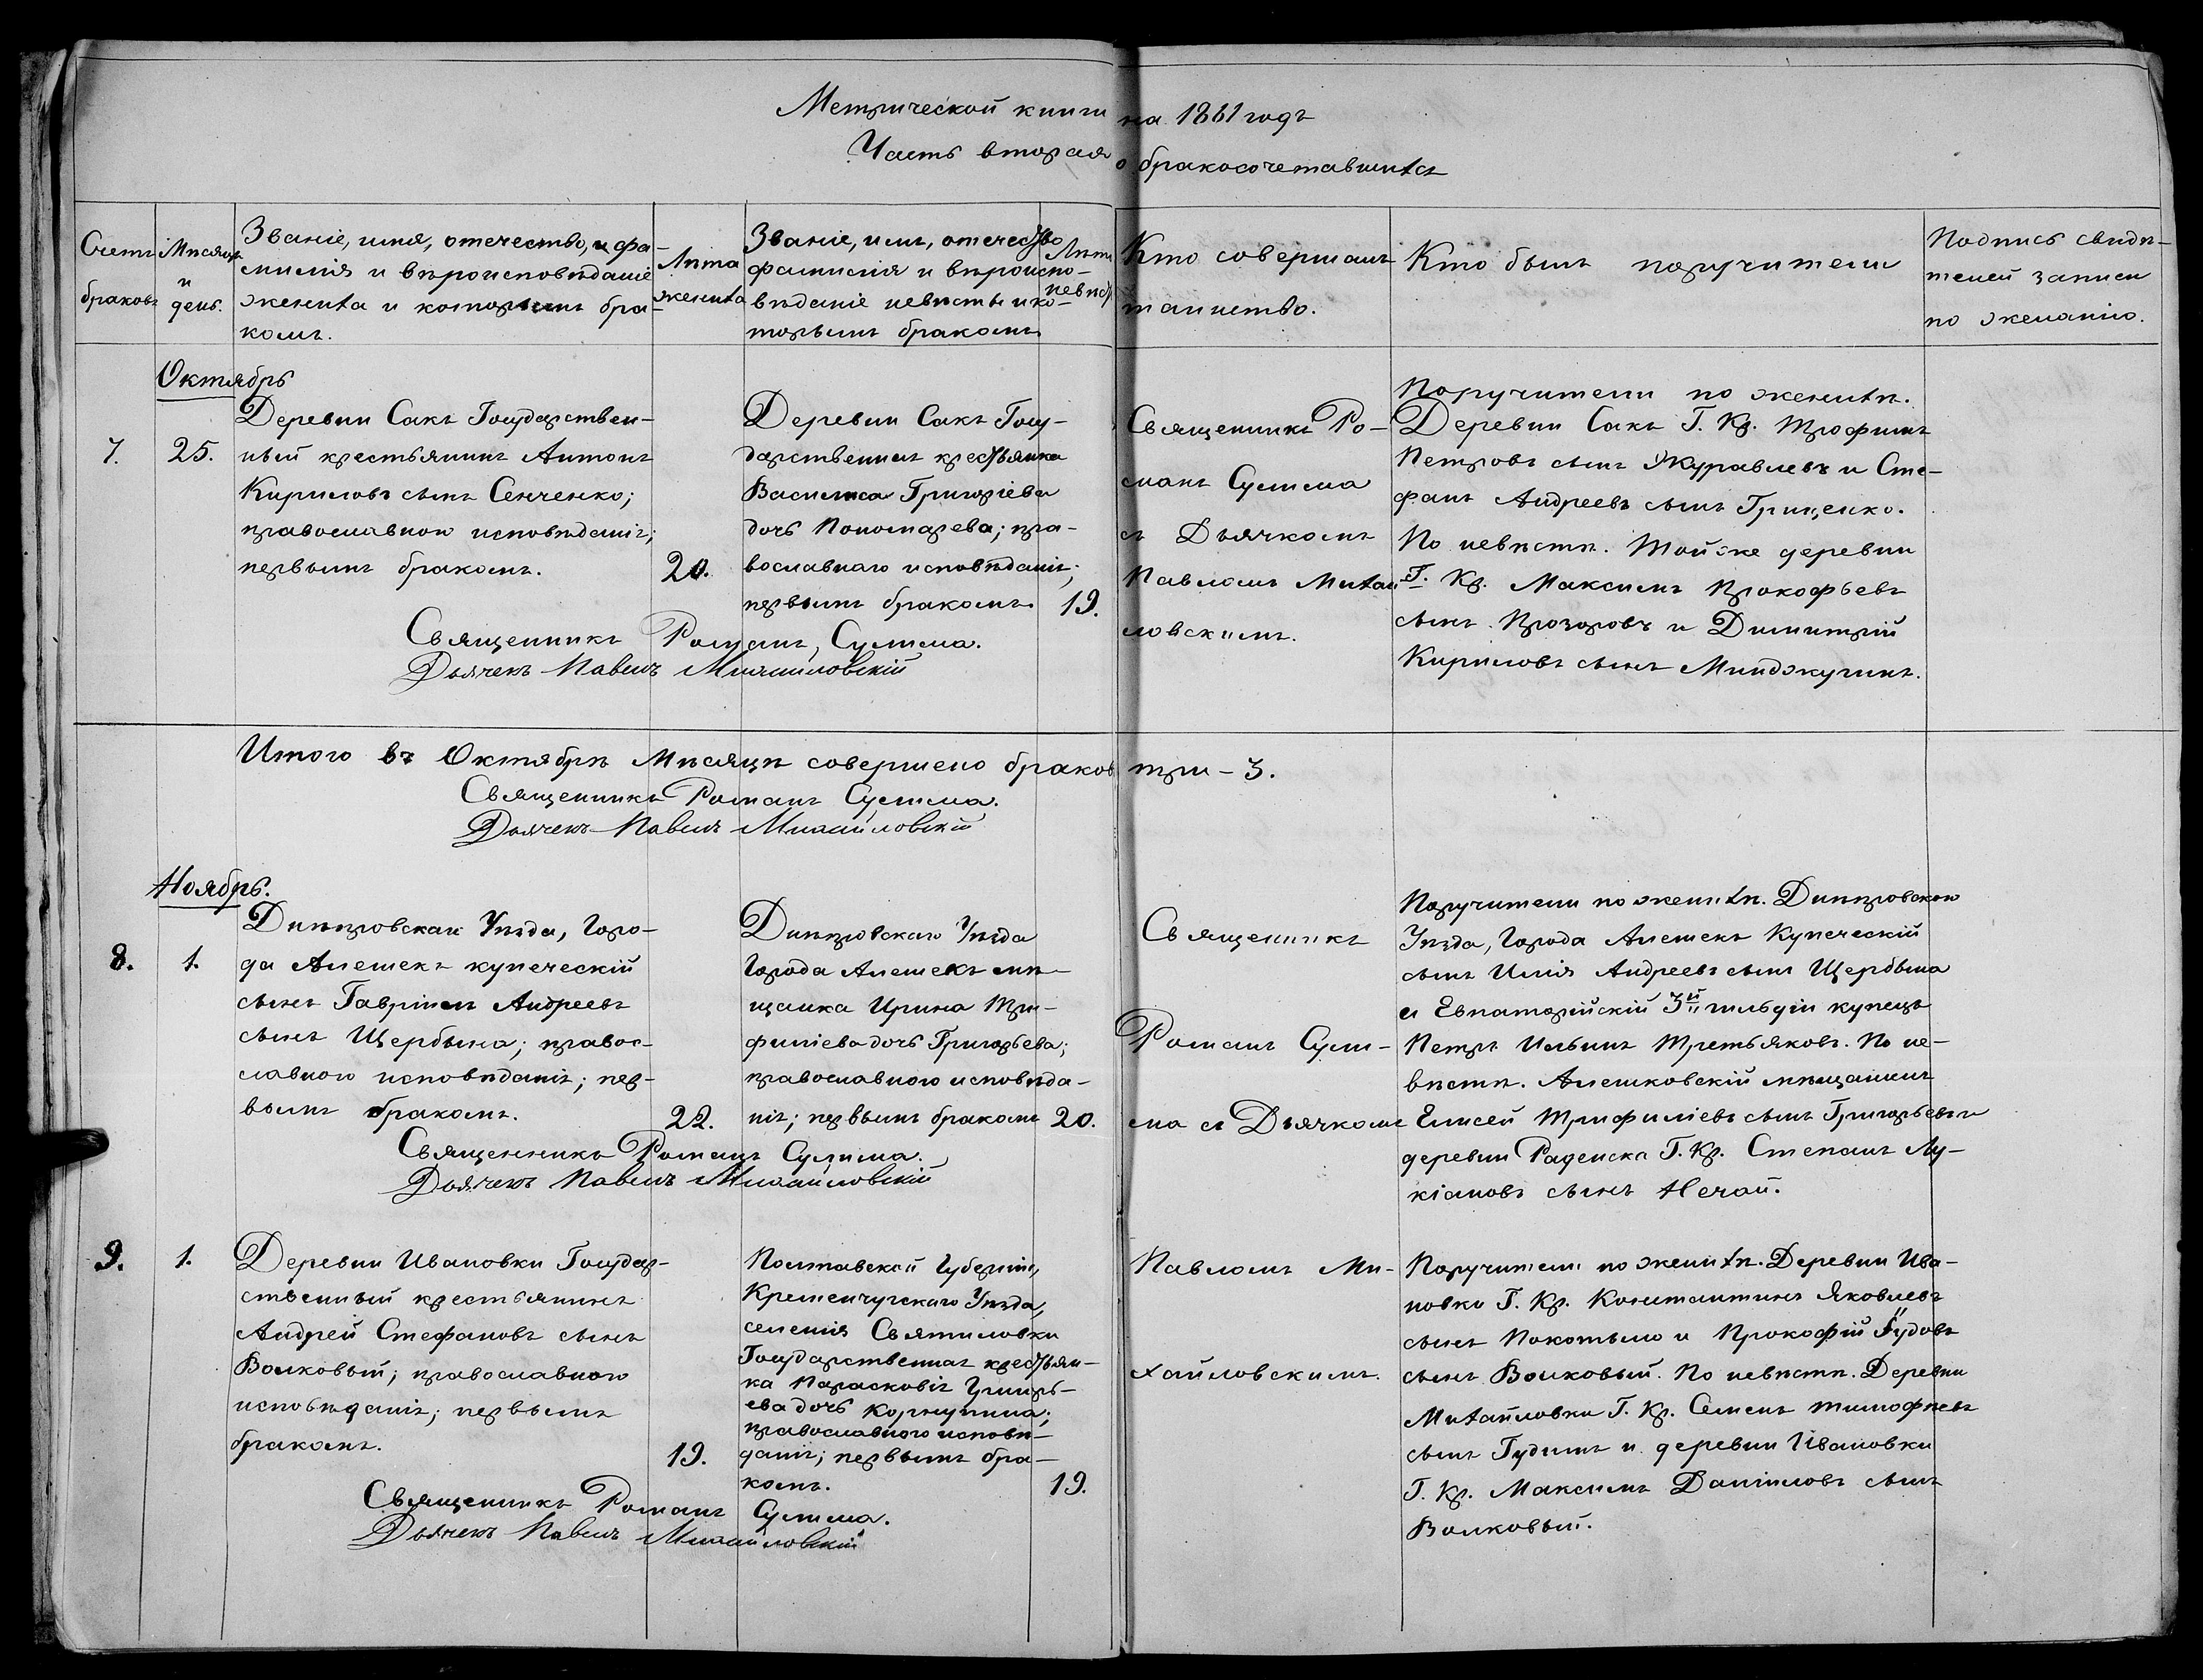 Метрической книги на 1861 годъ
Часть вторая о бракосочетавшихся
Счетъ
браковъ
Мѣсяцъ
и
день.
Званіе, имя, отечество, и фа-
милія и вѣроисповѣданіе
жениха и которымъ бра-
комъ.
Лѣта
жениха
Званіе, имя, отечество
фамилія и вѣроиспо-
вѣданіе невѣсты и ко-
торымъ бракомъ
Лѣта
невѣс
Кто совершалъ
таинство.
Кто былъ поручители
Подпись свидѣ-
телей записи
по желанію.
Октябрь
7.
25.
Деревни Сакъ Государствен-
ный крестьянинъ Антонъ
Кириловъ сынъ Сенченко;
православного исповѣданія;
первымъ бракомъ.
20.
Деревни Сакъ Госу-
дарственная крестьянка
Василиса Григоріева
дочь Пономарева; пра-
вославнаго исповѣданія;
первымъ бракомъ.
19.
Священникъ Ро-
манъ Сулима
съ Дьячкомъ
Павломъ Михай-
ловскимъ.
Поручители по женихѣ.
Деревни Сакъ Г. Кр. Трофимъ
Петровъ сынъ Журавлевъ и Сте-
фанъ Андреевъ сынъ Гриценко.
По невѣстѣ. Тойже деревни
Г. Кр. Максимъ Прокофьевъ
сынъ Прозоровъ и Димитрій
Кириловъ сынъ Минджугинъ.
Священникъ Романъ Сулима.
Дьячекъ Павелъ Михайловскій
Итого въ Октябрѣ Мѣсяцѣ совершено браковъ три - 3.
Священникъ Романъ Сулима.
Дьячекъ Павелъ Михайловскій
Ноябрь.
8.
1.
Днѣпровскаго Уѣзда, Горо-
да Алешекъ купеческій
сынъ Гавріилъ Андреевъ
сынъ Щербына; правос-
лавного исповѣданія; пер-
вымъ бракомъ.
22.
Днѣпровскаго Уѣзда
Города Алешекъ мѣ-
щанка Ирина Три-
филіева дочь Григорьева;
православного исповѣда-
нія; первымъ бракомъ
20.
Священникъ
Романъ Сули-
ма съ Дьячкомъ
Поручители по женихѣ. Днѣпровского
Уѣзда, Города Алешекъ Купеческій
сынъ Илія Андреевъ сынъ Щербына
и Евпаторійскій 3й гильдіи купецъ
Петръ Ильинъ Третьяковъ. По не-
вѣстѣ. Алешковскій мѣщанинъ
Елисей Трифиліевъ сынъ Григорьевъ и
деревни Раденска Г. Кр. Степанъ Лу-
кіановъ сынъ Нечай.
Священникъ Романъ Сулима.
Дьячекъ Павелъ Михайловскій
9.
1.
Деревни Ивановки Государ-
ственный крестьянинъ
Андрей Стефановъ сынъ
Волковый; православного
исповѣданія; первымъ
бракомъ.
19.
Полтавской Губерніи,
Кременчугскаго Уѣзда,
селенія Святиловки
Государственная крестьян-
ка Парасковія Григорь-
ева дочь
православного исповѣ-
данія; первымъ бра-
комъ.
19.
Павломъ Ми-
хайловскимъ.
Поручители по женихѣ. Деревни Ива-
новки Г. Кр. Константинъ Яковлевъ
сынъ Покотыло и Прокофій
сынъ Волковый. По невѣстѣ. Деревни
Михайловки Г. Кр. Семенъ Тимофѣевъ
сынъ Гудимъ и деревни Ивановки
Г. Кр. Максимъ Даніиловъ сынъ
Волковый.
Священникъ Романъ Сулима.
Дьячекъ Павелъ Михайловскій